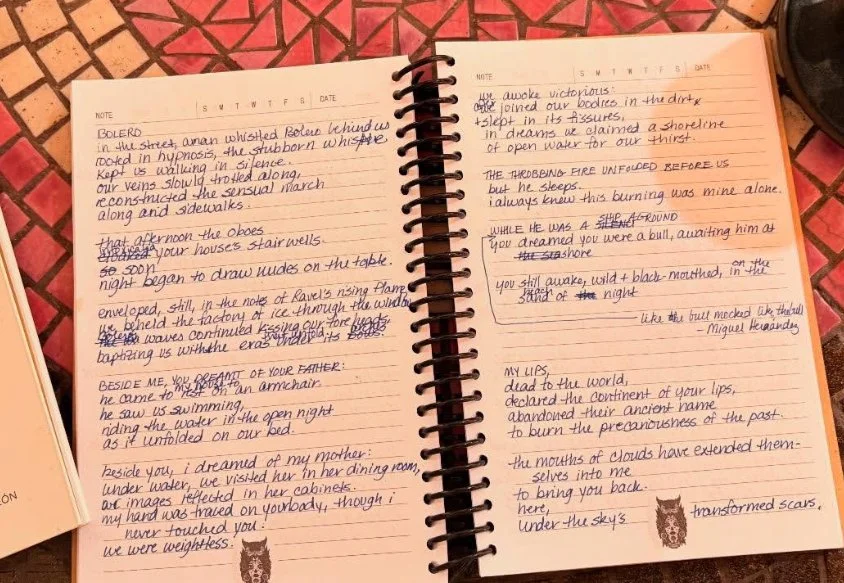 NOTE
S M T W T F S DATE
BOLERO
in the street, a man whistled Bolero behind us
rooted in hypnosis, the stubborn whistle,
kept us walking in silence.
our veins slowly trotted along,
reconstructed the sensual march
along arid sidewalks.
that afternoon the oboes
croaked your house's stairwells.
so soon
night began to draw nudes on the table.
enveloped, still, in the notes of Ravel's rising flame
we beheld the factory of ice through the window
waves continued kissing our foreheads,
baptizing us with the eras under its
BESIDE ME, YOU DREAMT OF YOUR FATHER:
he came to my house to rest on an armchair
he saw us swimming,
riding the water in the open night
as it unfolded on our bed.
beside you, i dreamed of my mother:
under water, we visited her in her dining room,
images reflected in her cabinets.
my hand was traced on your body, though i
never touched you.
we were weightless.
NOTE
S M T W T F S DATE
we awoke victorious:
joined our bodies in the dirt
+ slept in its fissures,
in dreams we claimed a shoreline
of open water for our thirst.
THE THROBBING FIRE UNFOLDED BEFORE US
but he sleeps.
i always knew this burning was mine alone.
WHILE HE WAS A SHIP AGROUND
you dreamed you were a bull, awaiting him at
the sea shore
you still awake, wild + black-mouthed, on the
in the
sand of the night
like the bull mocked like the bull
- Miguel Hernández
MY LIPS,
dead to the world,
declared the continent of your lips,
abandoned their ancient name
to burn the precariousness of the past.
the mouths of clouds have extended them-
selves into me
to bring you back.
here,
under the sky's transformed scars.
ÓN